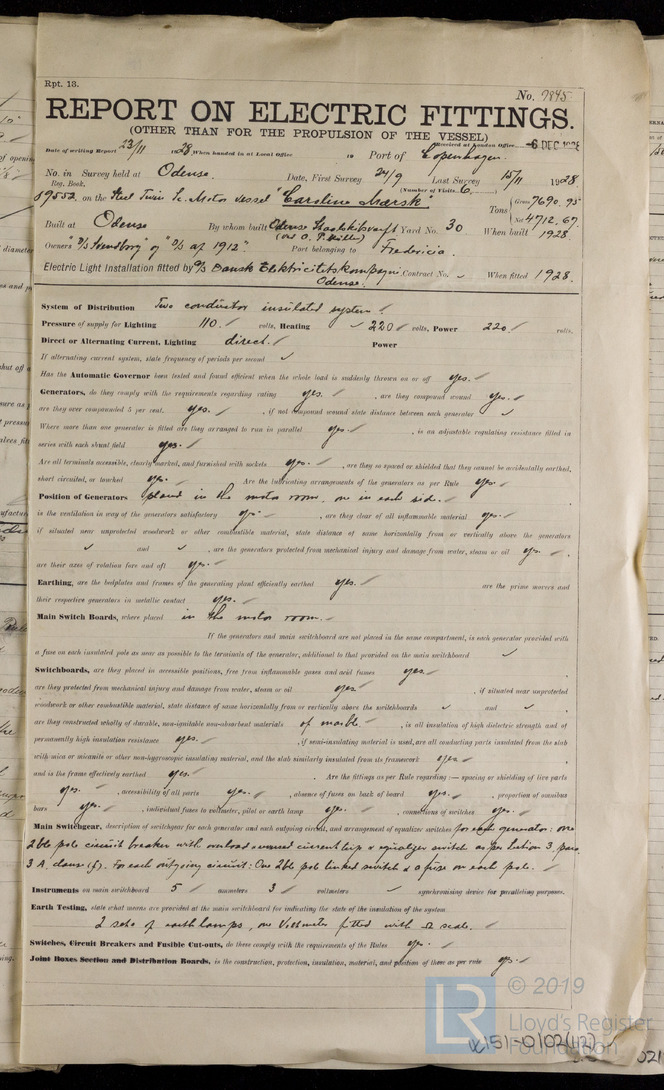 Rpt. 13.
No. 7845
REPORT ON ELECTRIC FITTINGS.
(OTHER THAN FOR THE PROPULSION OF THE VESSEL)
Received at London Office -6 DEC 1928
Date of writing Report 23/11 1928 When handed in at Local Office 19 Port of Copenhagen.
No. in Survey held at Odense. Date, First Survey 24/9 Last Survey 15/11 1928.
Reg. Book. (Number of Visits 6.)
89552 on the Steel Twin Sc. Motor vessel "Caroline Mærsk" Tons { Gross 7690.95
Net 4712.67
Built at Odense By whom built Odense Staalskibsværft Yard No. 30 When built 1928.
(ved A. P. Møller)
Owners "D/S Svendborg" og "D/S af 1912" Port belonging to Fredericia.
Electric Light Installation fitted by A/S Dansk Elektricitetskompagni Contract No. ✓ When fitted 1928.
Odense.
System of Distribution Two conductor insulated system.
Pressure of supply for Lighting 110. volts, Heating ✓ 220 volts, Power 220 volts.
Direct or Alternating Current, Lighting direct. Power
If alternating current system, state frequency of periods per second ✓
Has the Automatic Governor been tested and found efficient when the whole load is suddenly thrown on or off yes.
Generators, do they comply with the requirements regarding rating yes. , are they compound wound yes.
are they over compounded 5 per cent. yes. , if not compound wound state distance between each generator ✓
Where more than one generator is fitted are they arranged to run in parallel yes. , is an adjustable regulating resistance fitted in
series with each shunt field yes.
Are all terminals accessible, clearly marked, and furnished with sockets yes. , are they so spaced or shielded that they cannot be accidentally earthed,
short circuited, or touched yes. Are the lubricating arrangements of the generators as per Rule yes.
Position of Generators placed in the motor room, one in each side.
is the ventilation in way of the generators satisfactory yes. , are they clear of all inflammable material yes.
if situated near unprotected woodwork or other combustible material, state distance of same horizontally from or vertically above the generators
✓ and ✓ , are the generators protected from mechanical injury and damage from water, steam or oil yes.
are their axes of rotation fore and aft yes.
Earthing, are the bedplates and frames of the generating plant efficiently earthed yes. are the prime movers and
their respective generators in metallic contact yes.
Main Switch Boards, where placed in the motor room.
If the generators and main switchboard are not placed in the same compartment, is each generator provided with
a fuse on each insulated pole as near as possible to the terminals of the generator, additional to that provided on the main switchboard ✓
Switchboards, are they placed in accessible positions, free from inflammable gases and acid fumes yes.
are they protected from mechanical injury and damage from water, steam or oil yes. , if situated near unprotected
woodwork or other combustible material, state distance of same horizontally from or vertically above the switchboards ✓ and ✓ ,
are they constructed wholly of durable, non-ignitable non-absorbent materials of marble , is all insulation of high dielectric strength and of
permanently high insulation resistance yes. , if semi-insulating material is used, are all conducting parts insulated from the slab
with mica or micanite or other non-hygroscopic insulating material, and the slab similarly insulated from its framework yes. ,
and is the frame effectively earthed yes. . Are the fittings as per Rule regarding :— spacing or shielding of live parts
yes. , accessibility of all parts yes. , absence of fuses on back of board yes. , proportion of omnibus
bars yes. , individual fuses to voltmeter, pilot or earth lamp yes. , connections of switches yes.
Main Switchgear, description of switchgear for each generator and each outgoing circuit, and arrangement of equalizer switches for each generator: one
2ble pole circuit breaker with overload reversed current trip & equalizer switch as per Section 3, para
3 A, clause (f). For each outgoing circuit: One 2ble pole linked switch & a fuse on each pole.
Instruments on main switchboard 5 ammeters 3 voltmeters ✓ synchronising device for paralleling purposes.
Earth Testing, state what means are provided at the main switchboard for indicating the state of the insulation of the system
2 sets of earth lamps, one Voltmeter fitted with Ω scale.
Switches, Circuit Breakers and Fusible Cut-outs, do these comply with the requirements of the Rules yes.
Joint Boxes Section and Distribution Boards, is the construction, protection, insulation, material, and position of these as per rule yes.
© 2019
LR
Lloyd's Register
Foundation
W151-0102(1/2)